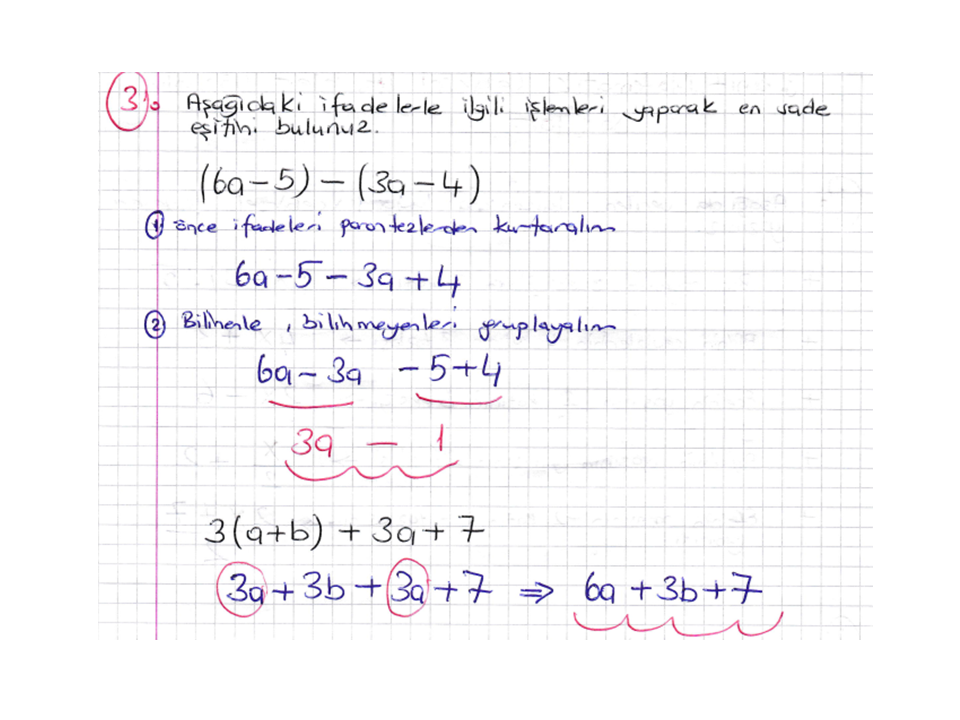 3. Aşağıdaki ifadelerle ilgili işlemleri yaparak en sade
eşitini bulunuz.
(6a-5) - (3a-4)
① Önce ifadeleri parantezlerden kurtaralım
6a-5-3a+4
② Bilinenle, bilinmeyenleri gruplayalım
6a-3a -5+4
3a - 1
3(a+b) + 3a + 7
3a + 3b + 3a + 7 ⇒ 6a + 3b + 7